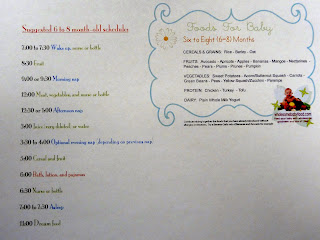 Suggested 6 to 8 month-old schedule:
7:00 to 7:30 Wake up, nurse or bottle
8:30 Fruit
9:00 or 9:30 Morning nap
12:00 Meat, vegetables, and nurse or bottle
12:30 or 1:00 Afternoon nap
3:00 Juice (very diluted) or water
3:30 to 4:00 Optional evening nap
5:00 Cereal and fruit
6:00 Bath, lotion, and pajamas
6:30 Nurse or bottle
7:00 to 7:30 Asleep
11:00 Dream feed
Foods For Baby
Six to Eight (6-8) Months
CEREALS & GRAINS: Rice - Barley - Oat
FRUITS: Avocado - Apricots - Apples - Bananas - Mangos - Nectarines -
Peaches - Pears - Plums - Prunes - Pumpkin
VEGETABLES: Sweet Potatoes - Acorn/Butternut Squash - Carrots -
Green Beans - Peas - Yellow Squash/Zucchini - Parsnips
PROTEIN: Chicken - Turkey - Tofu
DAIRY: Plain Whole Milk Yogurt
wholesomebabyfood.com